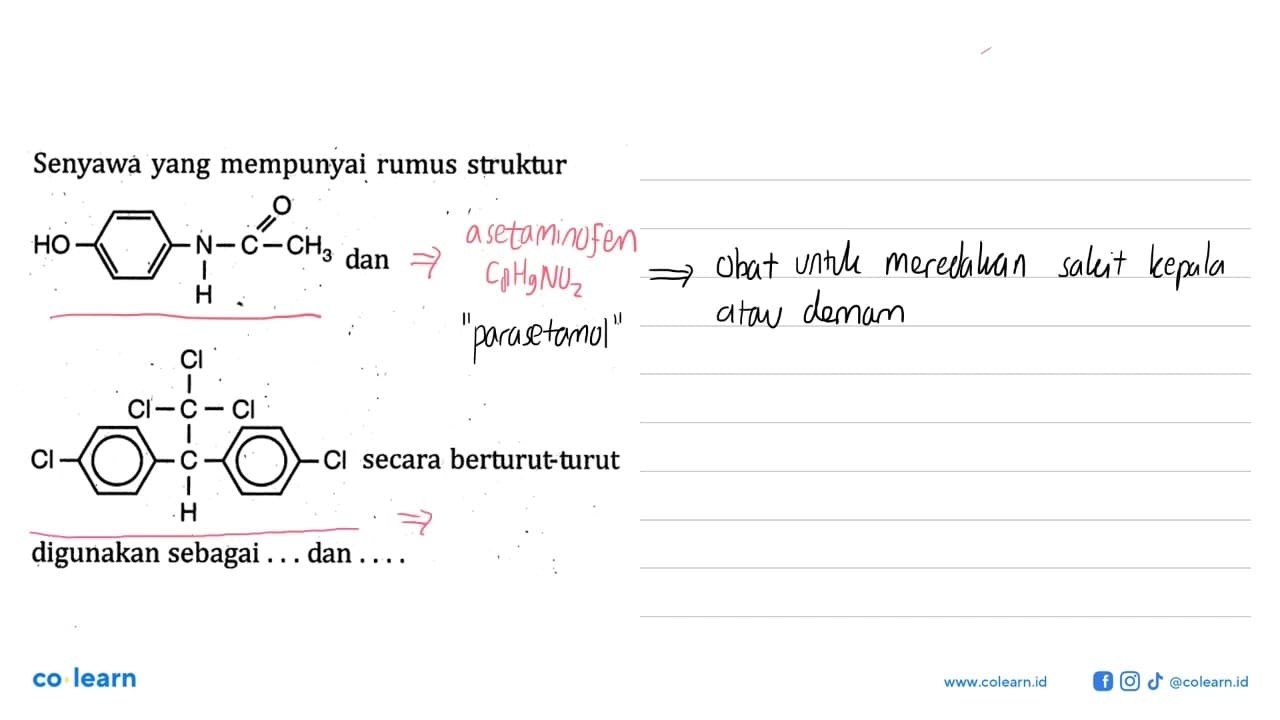 Senyawa yang mempunyai rumus struktur
O
HO N-C-CH3 dan ⇒ asetaminofen
H
C8H9NO2
"parasetamol"
⇒ Obat untuk meredakan sakit kepala
atau demam
Cl
Cl-C-Cl
Cl C Cl secara berturut-turut
H
⇒
digunakan sebagai ... dan ....
co learn
www.colearn.id @colearn.id